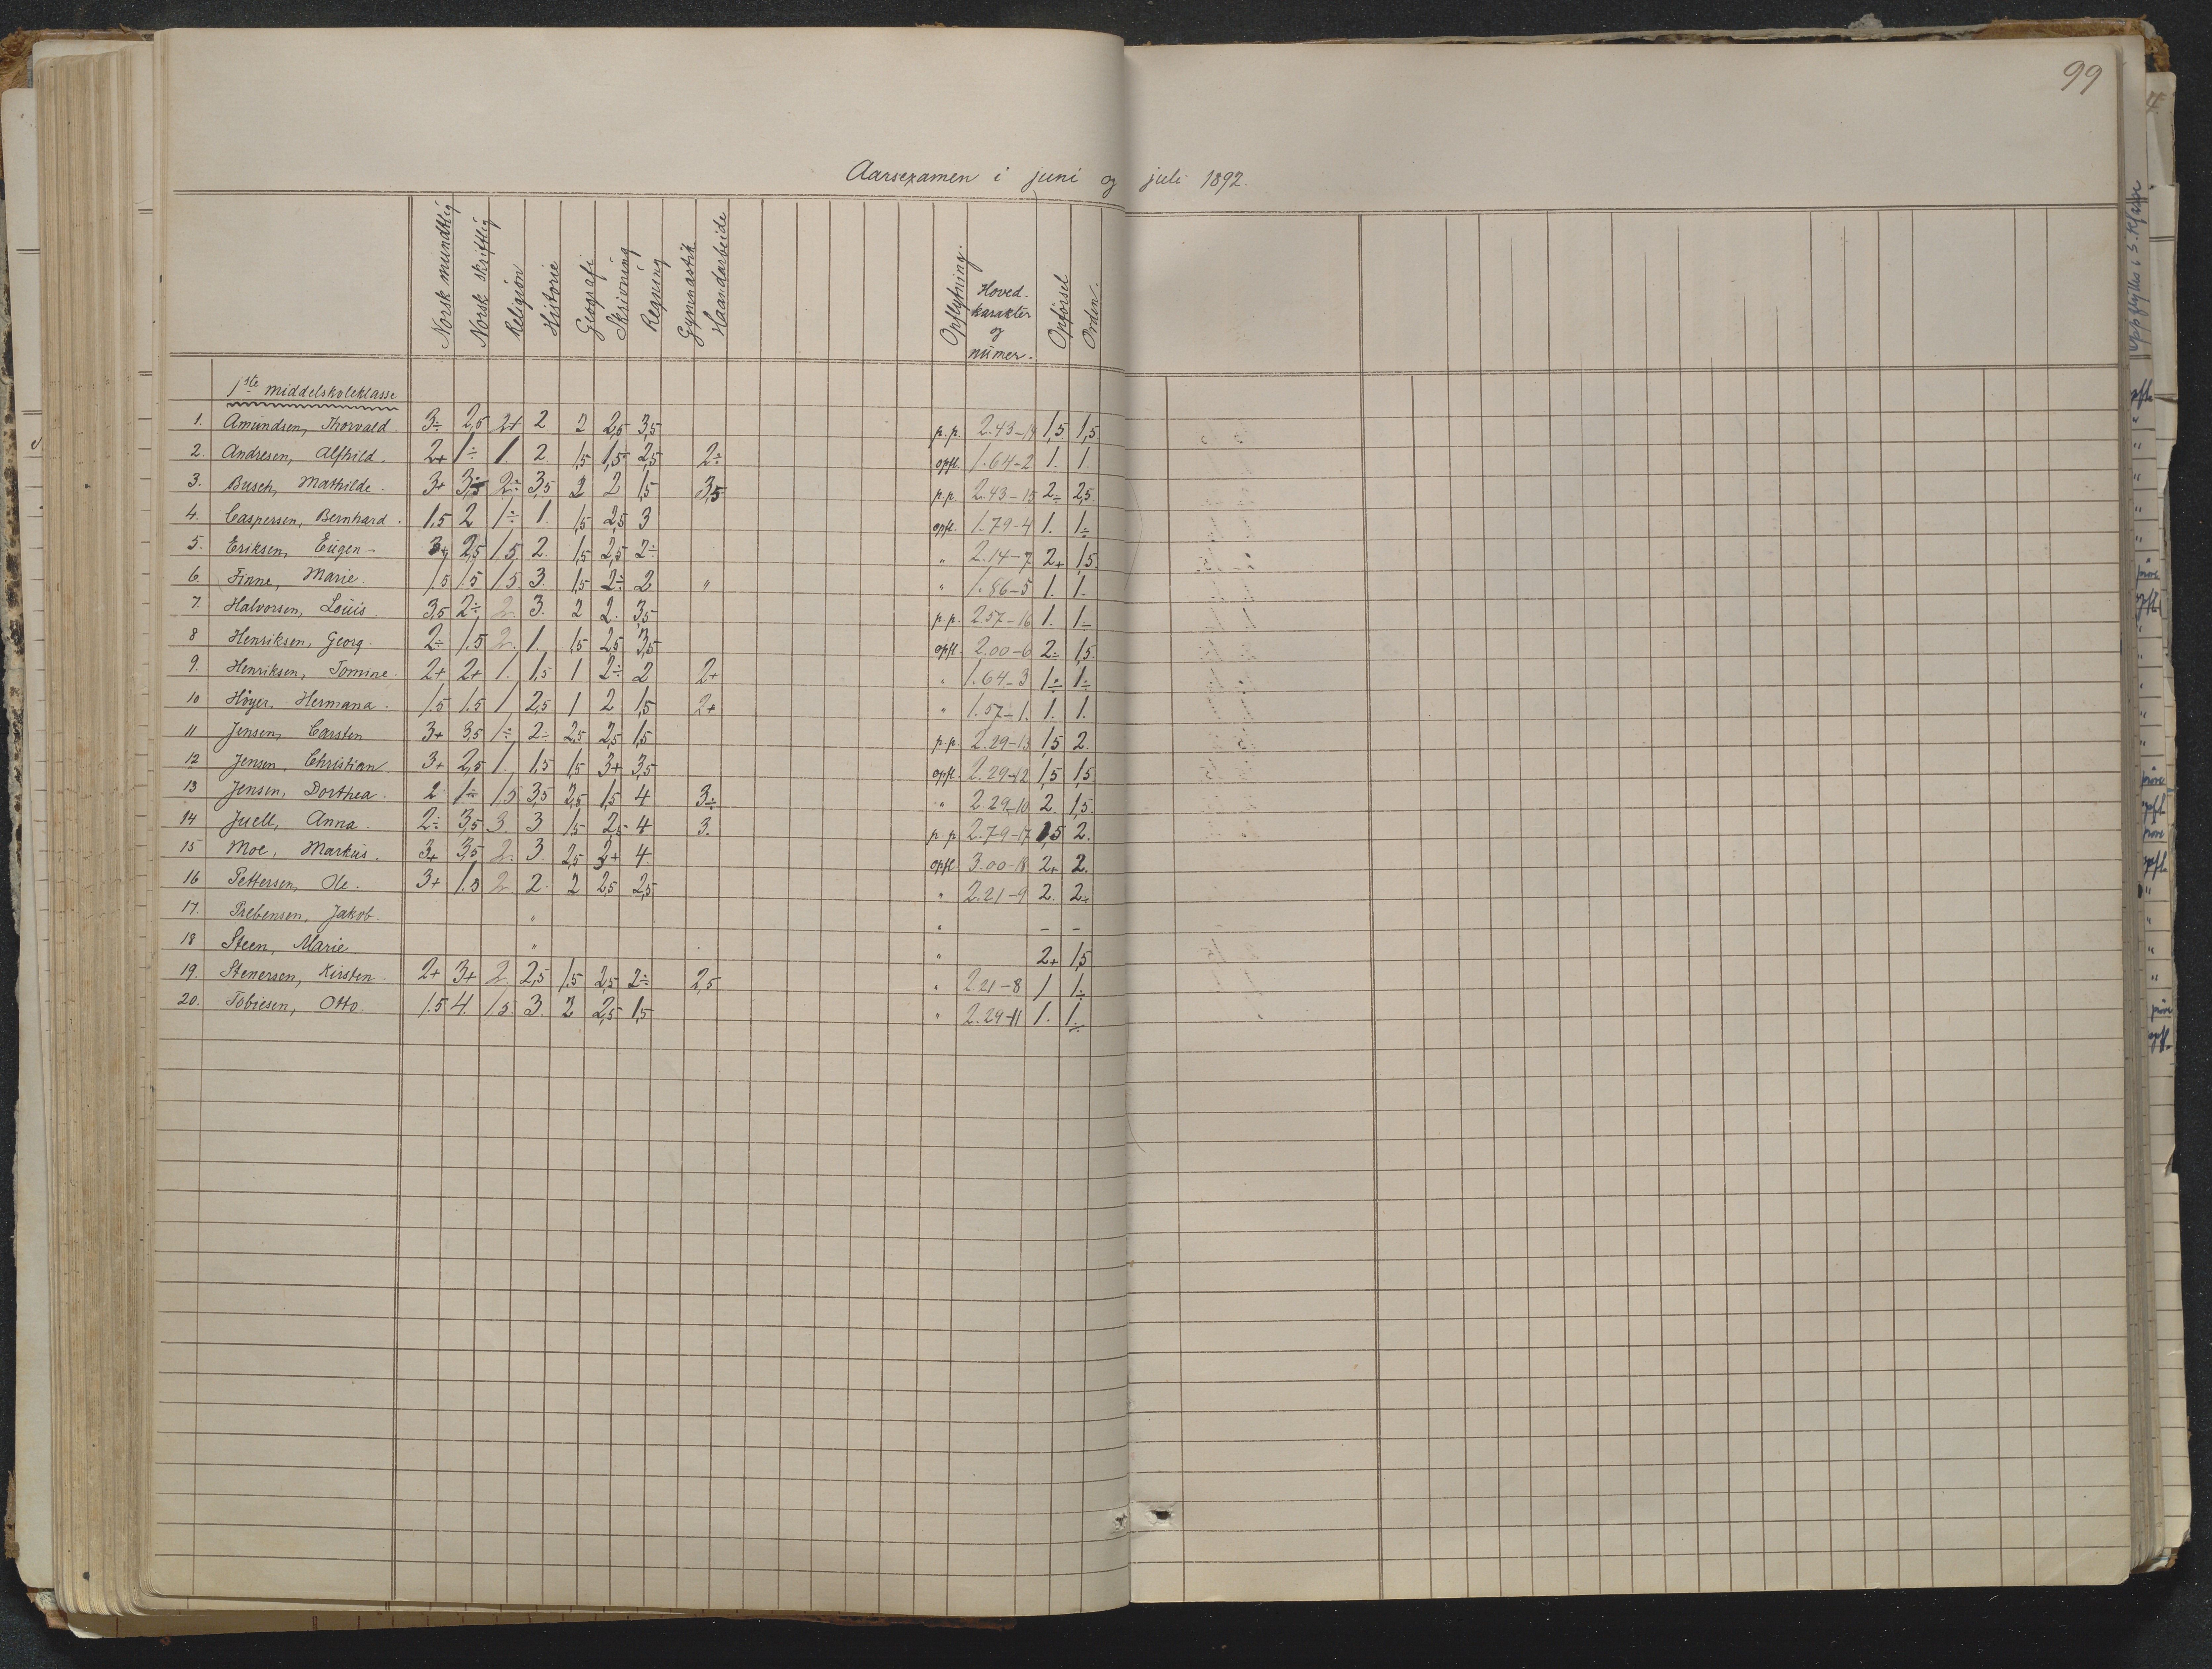 99
Aarsexamen i juni og juli 1892.
Norsk mundtlig Norsk skriftlig Religion Historie Geografi Skrivning Regning Gymnastik Haandarbeide Opflytning. Hoved-karakter og numer. Opførsel Orden.
1ste middelskoleklasse
1. Amundsen, Thorvald. 3÷ 2,5 2+ 2. 2 2,5 3,5 p.p. 2.43-14 1,5 1,5
2. Andresen, Alfhild. 2+ 1÷ 1. 2. 1,5 1,5 2,5 2÷ opfl. 1.64-2 1. 1.
3. Busch, Mathilde. 3+ 3,5 2÷ 3,5 2 2 1,5 3,5 p.p. 2.43-15 2÷ 2,5.
4. Caspersen, Bernhard. 1.5 2 1÷ 1. 1,5 2,5 3 opfl. 1.79-4 1. 1÷
5. Eriksen, Eugen 3+ 2,5 1.5. 2. 1,5 2,5 2÷ " 2.14-7 2+ 1,5.
6. Finne, Marie. 1.5 1.5 1.5 3. 1,5 2÷ 2 " " 1.86-5 1. 1.
7. Halvorsen, Louis. 3,5 2÷ 2. 3. 2 2. 3,5 p.p. 2.57-16 1. 1÷
8 Henriksen, Georg. 2÷ 1.5 2. 1. 1,5 2,5 3,5 opfl. 2.00-6 2÷ 1,5.
9. Henriksen, Tomine. 2+ 2+ 1. 1,5 1 2÷ 2 2+ " 1.64-3 1÷ 1÷
10 Høyer, Hermana. 1.5 1.5 1 2,5 1 2 1,5 2+ " 1.57-1. 1. 1.
11 Jensen, Carsten 3+ 3,5 1÷ 2÷ 2,5 2,5 1,5 p.p. 2.29-13 1,5 2.
12 Jensen, Christian. 3+ 2,5 1. 1,5 1,5 3+ 3,5 opfl. 2.29-12 1,5 1,5
13 Jensen, Dorthea. 2 1÷ 1,5 3,5 2,5 1,5 4 3÷ " 2.29-10 2. 1,5.
14 Juell, Anna. 2÷ 3,5 3. 3 1,5 2,5 4 3. p.p 2.79-17 1,5 2.
15 Moe, Markus. 3+ 3,5 2. 3. 2,5 3+ 4. opfl. 3.00-18 2+ 2.
16 Pettersen, Ole. 3+ 1.5 2. 2. 2 2,5 2,5 " 2.21-9 2. 2÷
17. Prebensen, Jakob. " " - -
18 Steen, Marie. " " 2+ 1,5
19. Stenersen, Kirsten. 2+ 3+ 2. 2,5 1.5 2,5 2÷ 2,5 " 2.21-8 1 1÷
20. Tobiesen, Otto. 1.5 4. 1.5. 3. 2 2,5 1,5 " 2.29-11 1. 1÷